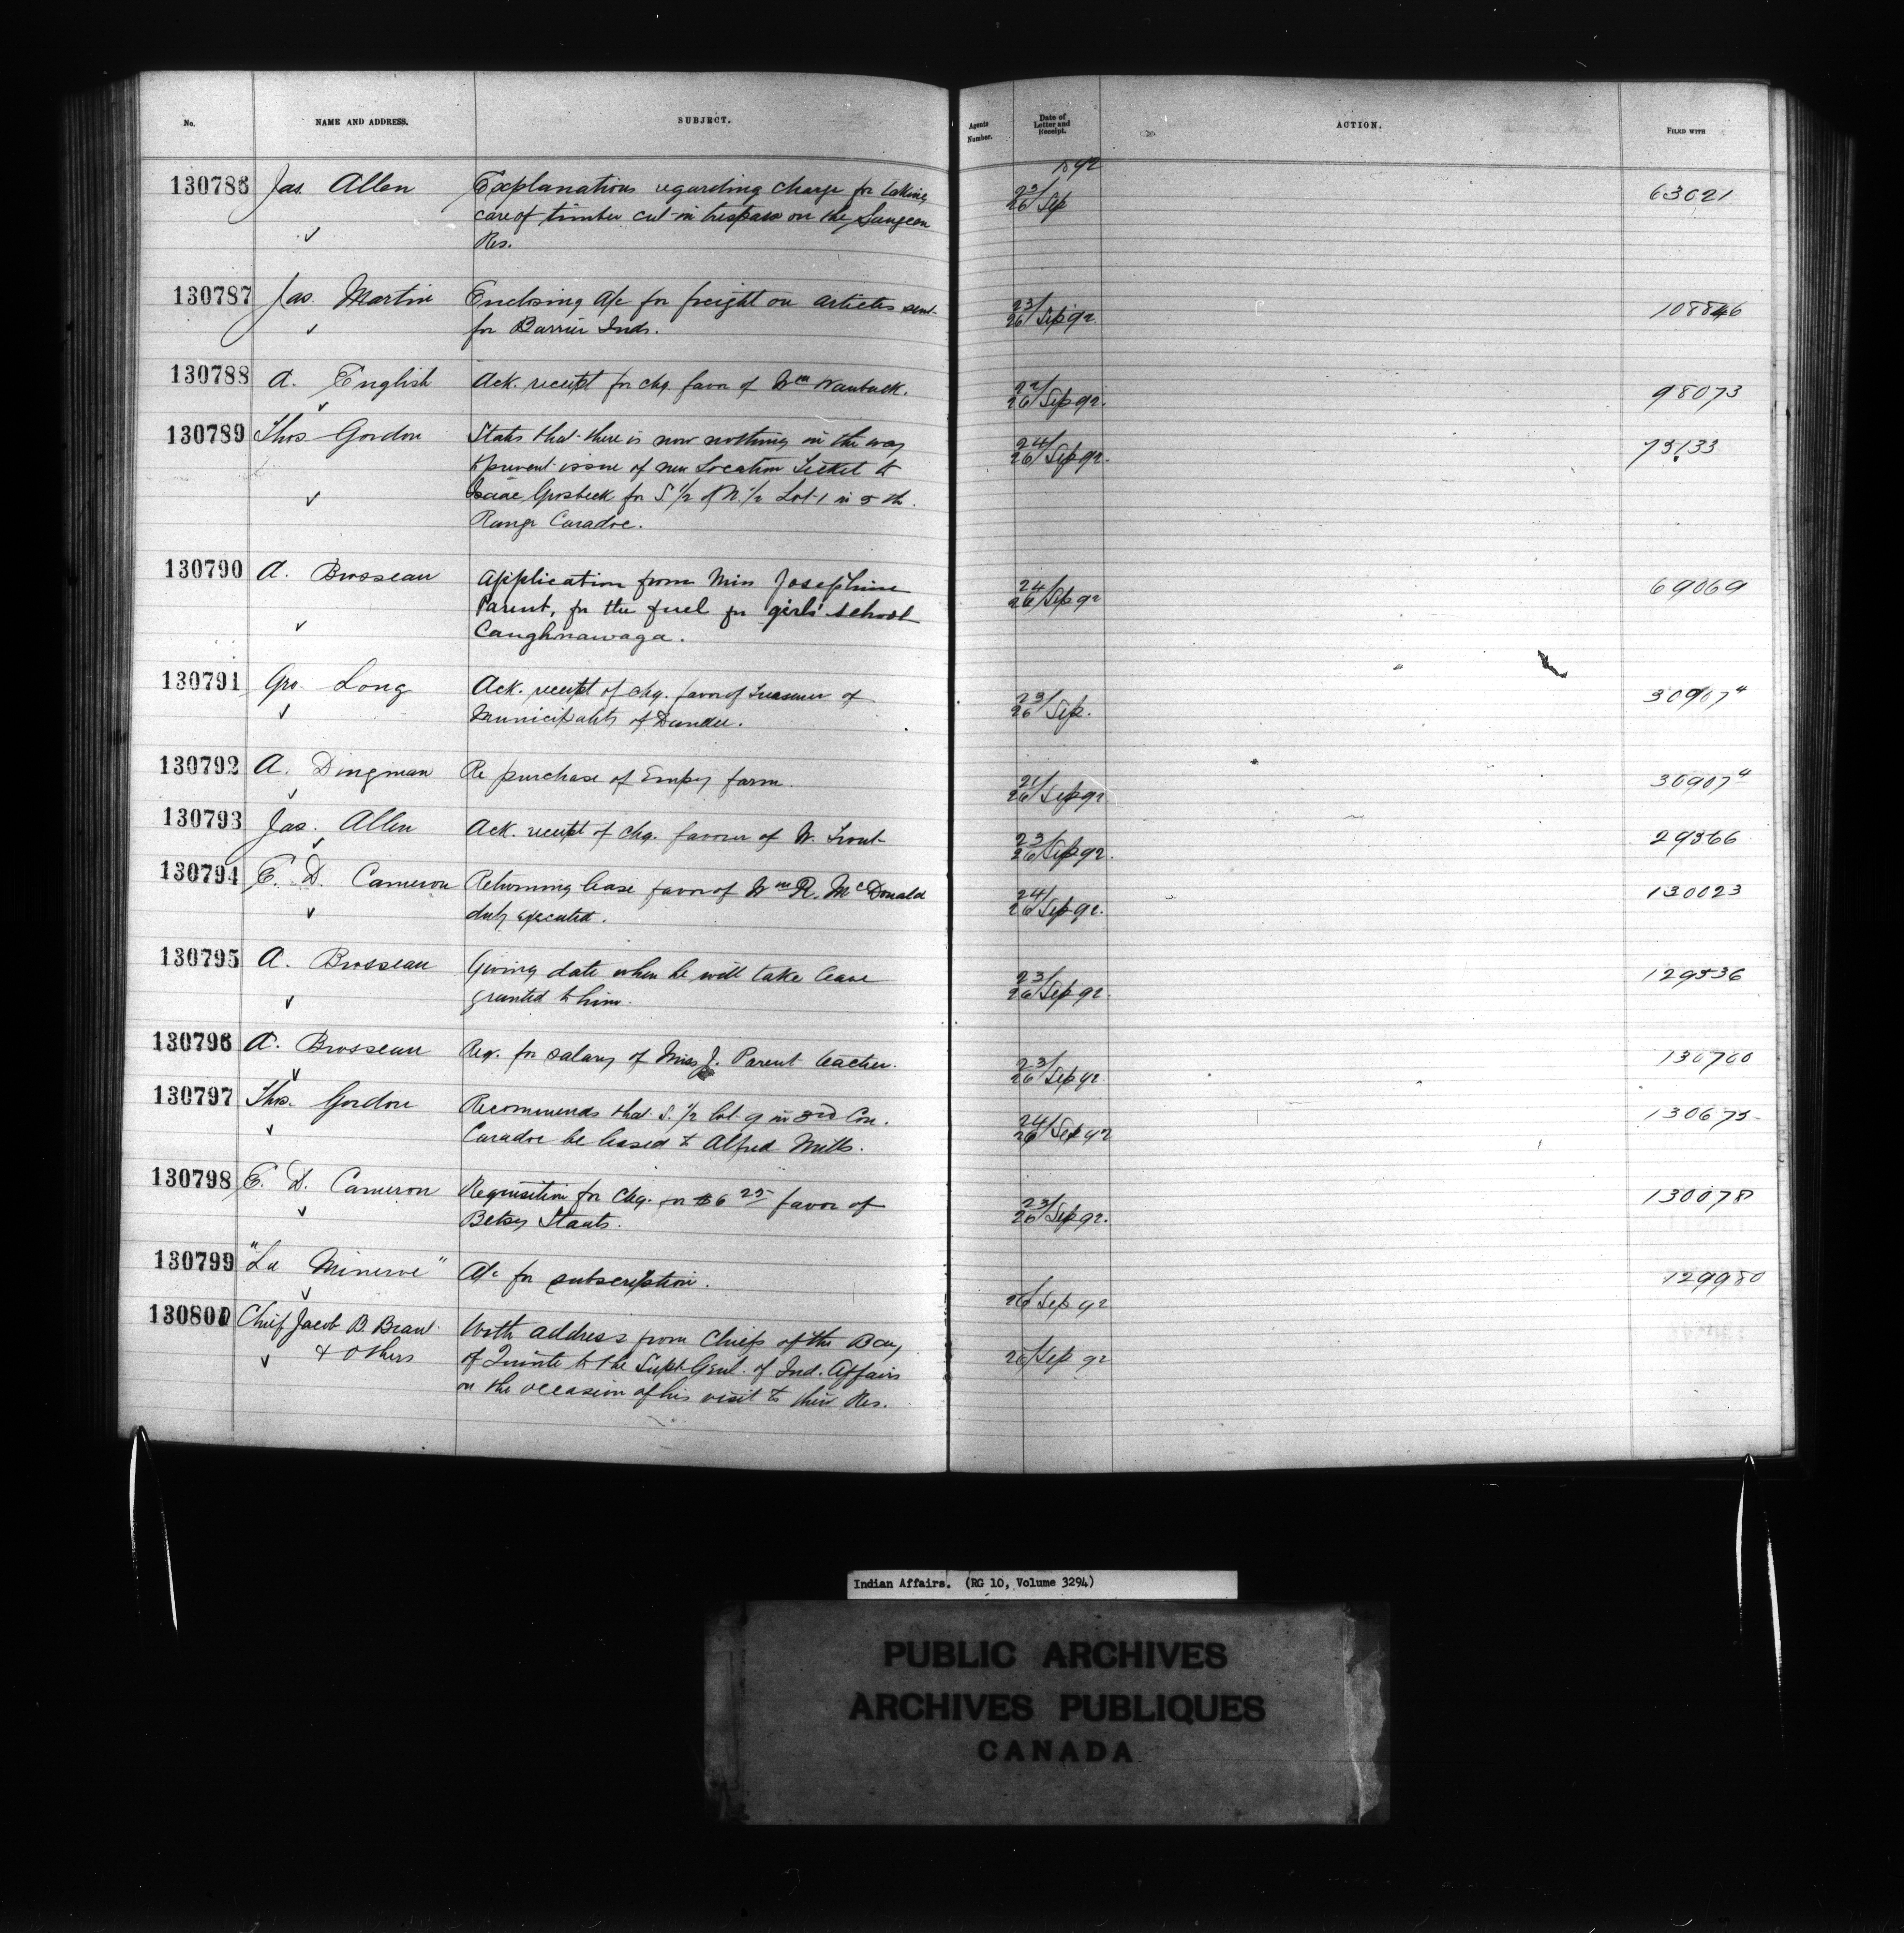 No. NAME AND ADDRESS. SUBJECT. Agents Number. Date of Letter and Receipt. ACTION. FILED WITH
1892
130786 Jas. Allen Explanations regarding charge for taking 23/26 Sep 63021
care of timber cut in trespass on the Saugeen
Res.
130787 Jas. Martin Enclosing a/c for freight on articles sent 23/26 Sep 92 108846
for Barrier Inds.
130788 A. English Ack. receipt for chq. favor of Wm 22/26 Sep 92. 98073
130789 Thos Gordon States that there is now nothing in the way 24/26 Sep 92. 75133
to prevent issue of new Location Ticket to
Isaac for S 1/2 of N. 1/2 Lot 1 in 5 th.
Range Caradoc.
130790 A. Brosseau Application from Miss Josephine 24/26 Sep 92 69069
Parent, for the fuel for girls' school
Caughnawaga.
130791 Geo. Long Ack. receipt of chq. favor of Treasurer of 23/26 Sep. 30907 4
Municipality of Dundee.
130792 A. Dingman Re purchase of Empey farm. 21/26 Sep 92 30907 4
130793 Jas. Allen Ack. receipt of chq. favour of W. Trout 23/26 Sep 92. 29366
130794 E. D. Cameron Returning lease favor of Wm R. McDonald 24/26 Sep 92. 130023
duly executed.
130795 A. Brosseau Giving date when he will take leave 23/26 Sep 92. 129536
granted to him.
130796 A. Brosseau Req. for salary of Miss J. Parent teacher. 23/26 Sep 92 130700
130797 Thos. Gordon Recommends that S. 1/2 lot 9 in 3rd Con. 24/26 Sep 92 130675
Caradoc be leased to Alfred Mills.
130798 E. D. Cameron Requisition for chq. for $6 25 favor of 23/26 Sep 92. 130078
Betsy Staats.
130799 "La Minerve" A/c for subscription. 26/Sep 92 129980
130800 Chief Jacob B. Brant With address from Chiefs of the Bay 26/Sep 92
& others of Quinte to the Supt Genl. of Ind. Affairs
on the occasion of his visit to their Res.
Indian Affairs. (RG 10, Volume 3294)
PUBLIC ARCHIVES
ARCHIVES PUBLIQUES
CANADA